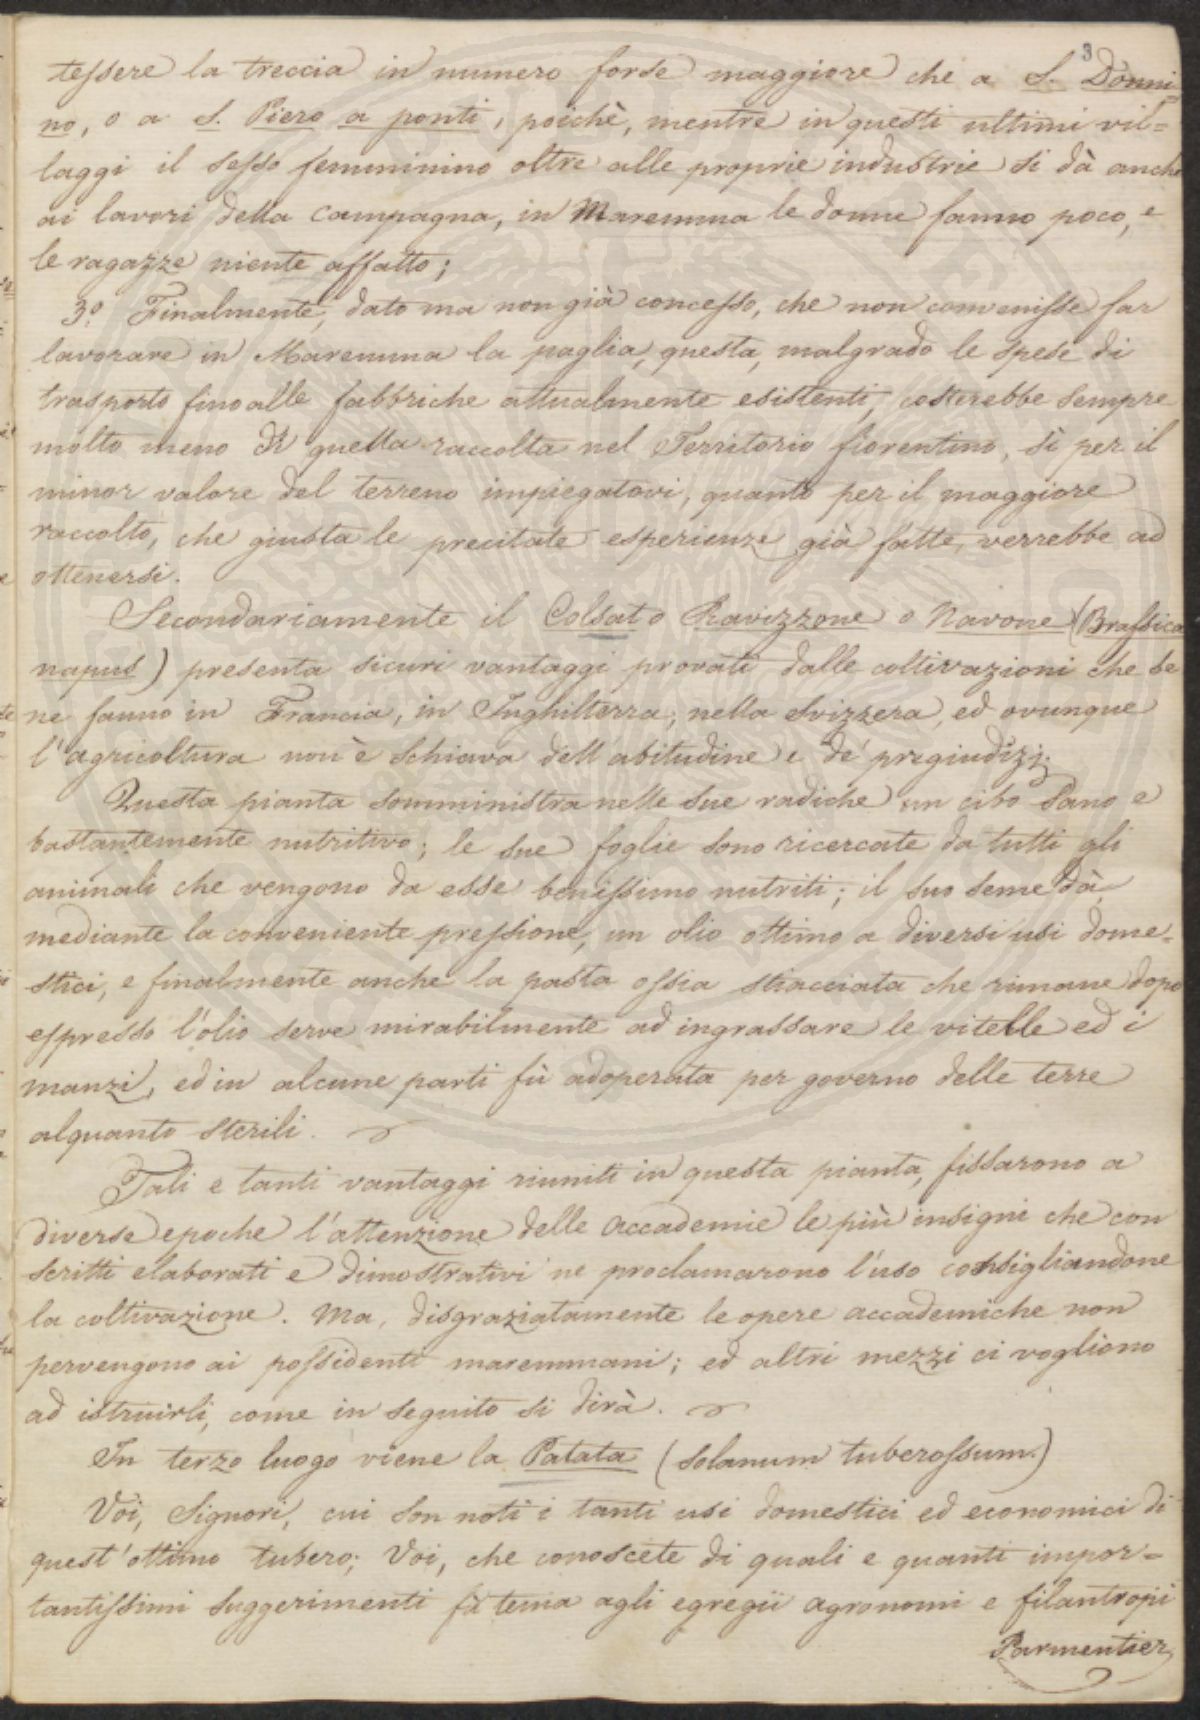 3
tessere la treccia in numero forse maggiore che a S. Donni=
no, o a S. Piero a ponti, poichè, mentre in questi ultimi vil=
laggi il sesso femminino oltre alle proprie industrie si dà anche
ai lavori della campagna, in Maremma le donne fanno poco, e
le ragazze niente affatto;
3.º Finalmente, dato ma non già concesso, che non convenisse far
lavorare in Maremma la paglia, questa, malgrado le spese di
trasporto fino alle fabbriche attualmente esistenti, costerebbe sempre
molto meno di quella raccolta nel Territorio fiorentino, sì per il
minor valore del terreno impiegatovi, quanto per il maggiore
raccolto, che giusta le precitate esperienze già fatte, verrebbe ad
ottenersi.
Secondariamente il Colsat o Ravizzone o Navone (Brassica
napus) presenta sicuri vantaggi provati dalle coltivazioni che se
ne fanno in Francia, in Inghilterra, nella Svizzera, ed ovunque
l'agricoltura non è schiava dell'abitudine e de' pregiudizj.
Questa pianta somministra nelle sue radiche un cibo sano e
bastantemente nutritivo; le sue foglie sono ricercate da tutti gli
animali che vengono da esse benissimo nutriti; il suo seme dà,
mediante la conveniente pressione, un olio ottimo a diversi usi dome=
stici, e finalmente anche la pasta ossia stiacciata che rimane dopo
espresso l'olio serve mirabilmente ad ingrassare le vitelle ed i
manzi, ed in alcune parti fù adoperata per governo delle terre
alquanto sterili.
Tali e tanti vantaggi riuniti in questa pianta, fissarono a
diverse epoche l'attenzione delle accademie le più insigni che con
scritti elaborati e dimostrativi ne proclamarono l'uso consigliandone
la coltivazione. Ma, disgraziatamente le opere accademiche non
pervengono ai possidenti maremmani; ed altri mezzi ci vogliono
ad istruirli, come in seguito si dirà.
In terzo luogo viene la Patata (solanum tuberossum.)
Voi, Signori, cui son noti i tanti usi domestici ed economici di
quest'ottimo tubero; Voi, che conoscete di quali e quanti impor=
tantissimi suggerimenti fù tema agli egregii agronomi e filantropi
Parmentier